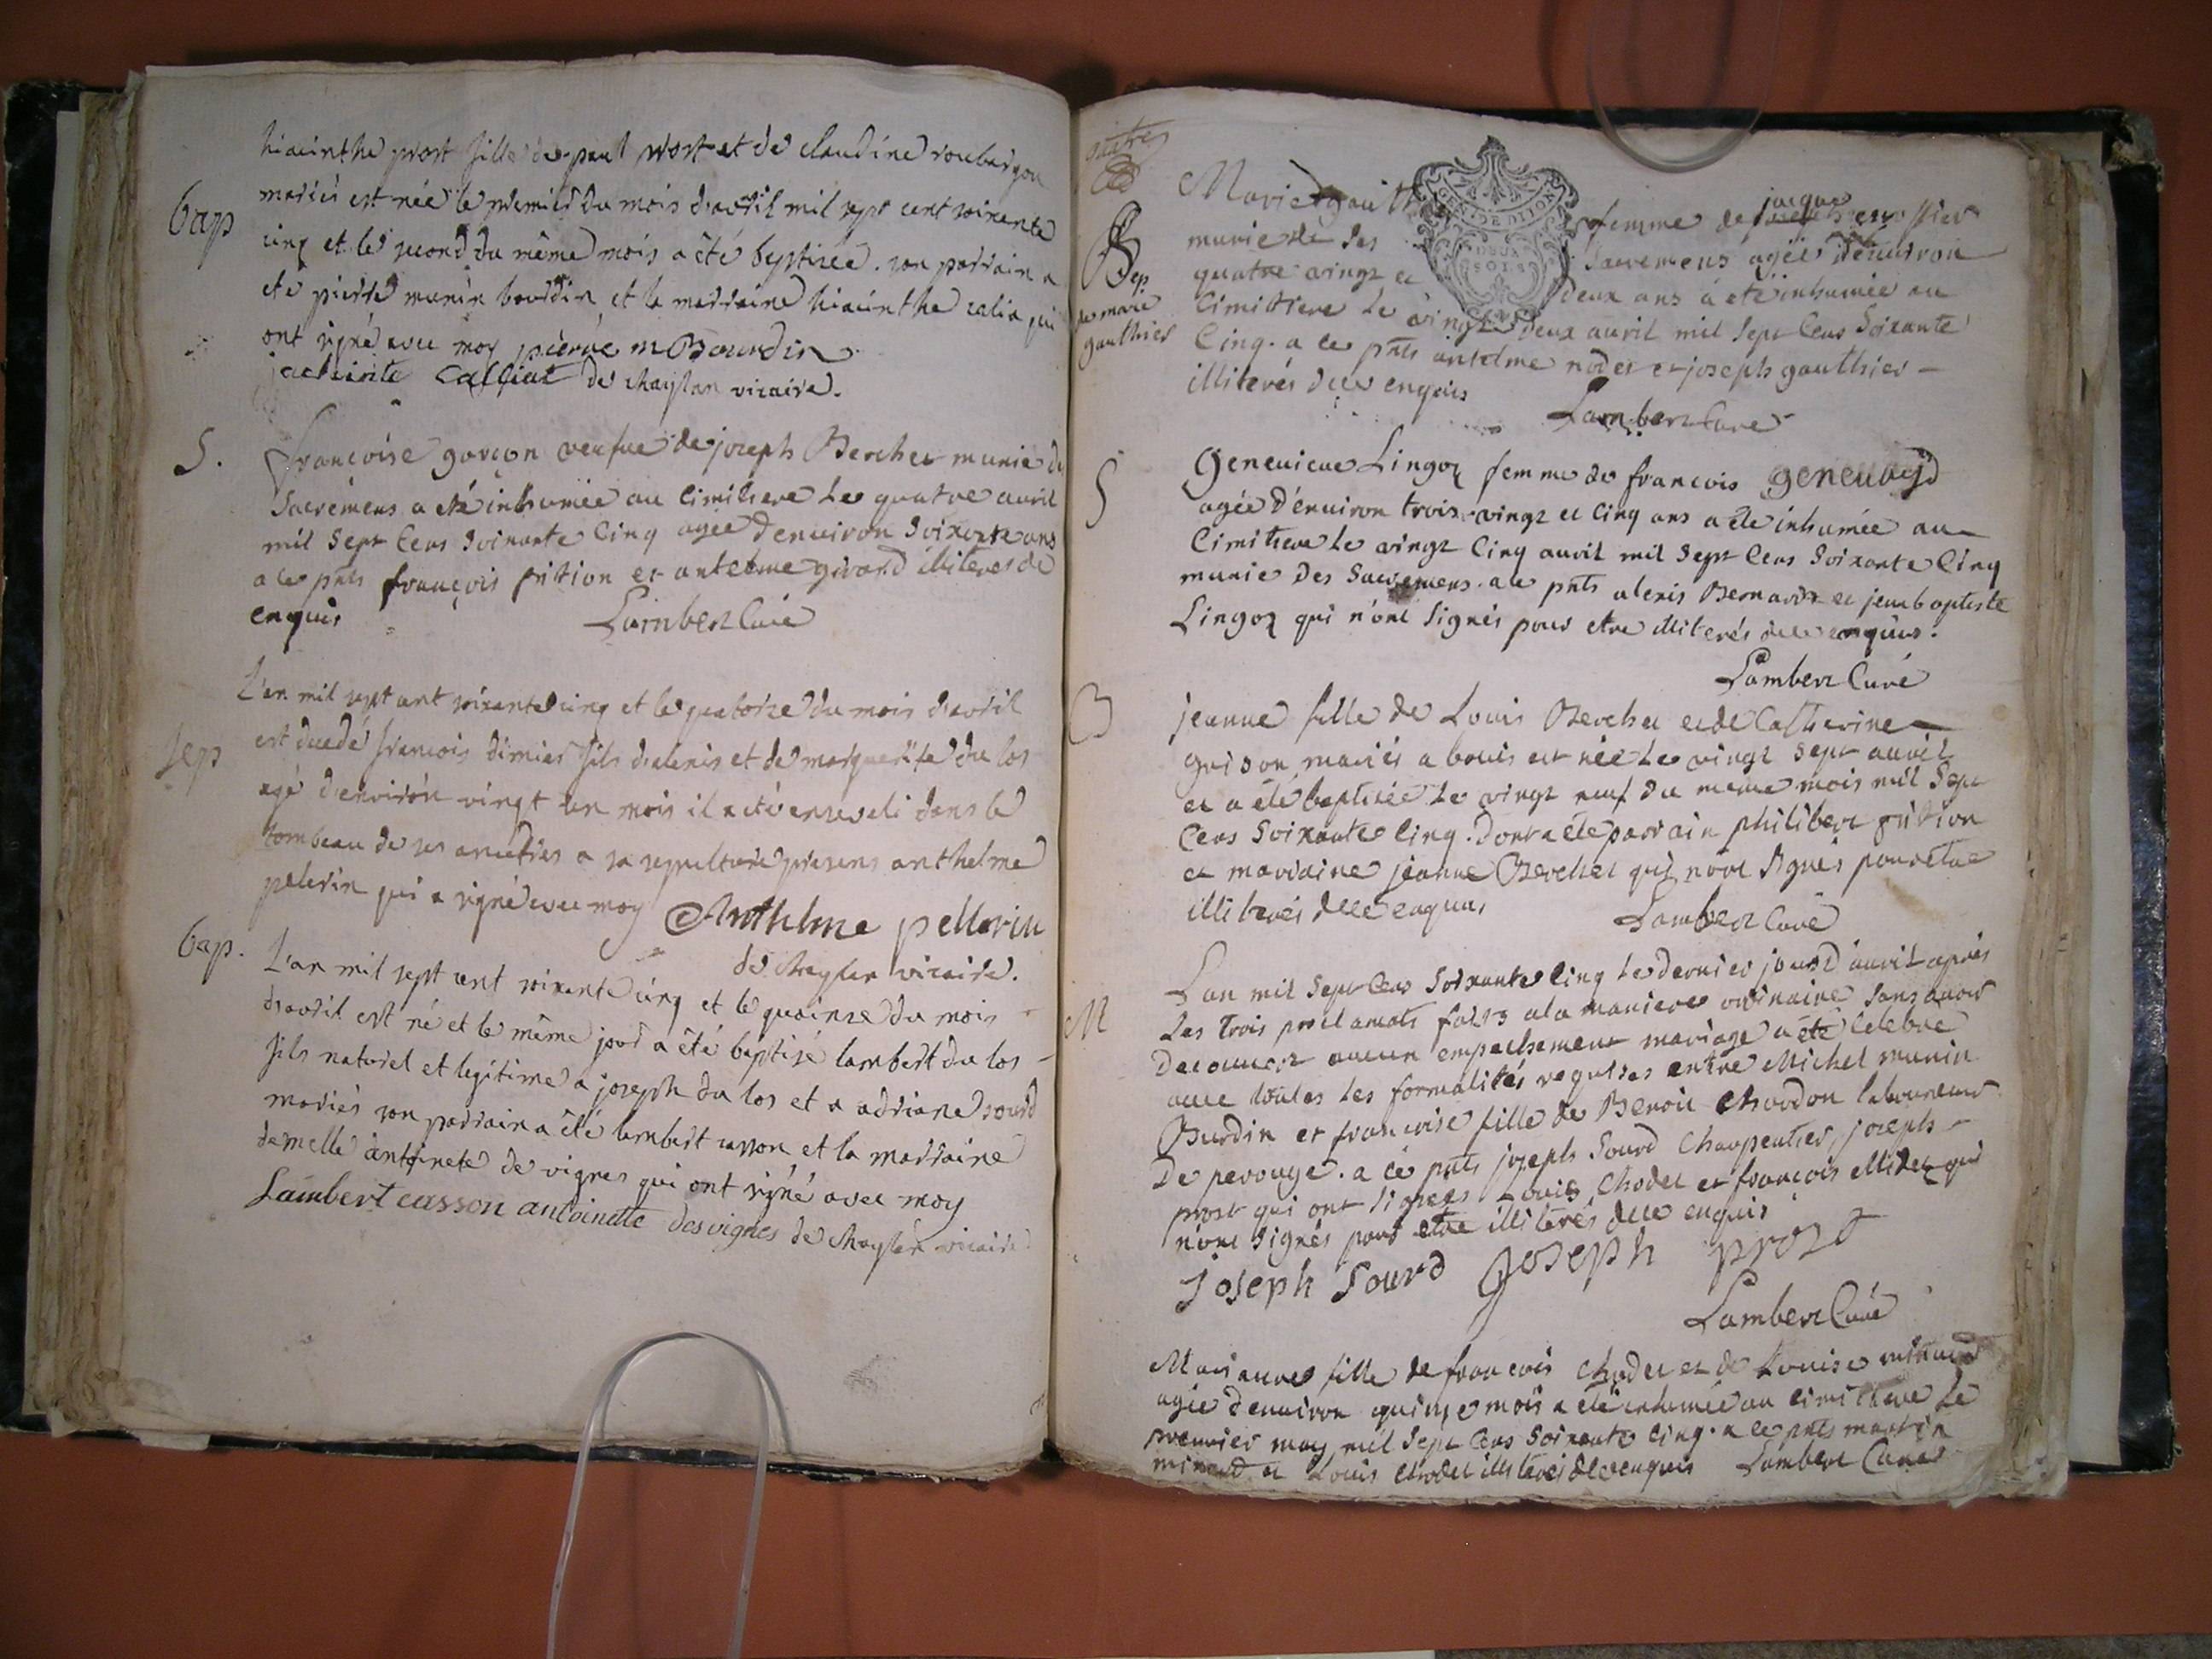 hiacinthe prost fille de paul prost et de claudine roubargon
bap
mariés est née le premier du mois d'avril mil sept cent soixante
cinq et le second du même mois a été baptisée. son parrain a
été pierre munin bourdin et la marraine hiacinthe calia qui
ont signé avec moy pierre m Bourdin
jacheinte calliat de chaylan vicaire.
S.
françoise garçon veufue de joseph Berchet munie de
Sacremens a eté inhumée au Cimitiere Le quatre auril
mil Sept Cens Soixante Cinq agée denuiron Soixante ans
a ce pnts françois pition et antelme girard illiterés de
enquis Lambert Curé
L'an mil sept cent soixante cinq et le quatorze du mois d'avril
sep
est decedé francois dimier fils d'alexis et de marguerite du los
agé d'environ vingt un mois il a été enseveli dans le
tombeau de ses ancetres a sa sepulture presens anthelme
pelerin qui a signé avec moy Anthelme pellerin
de chaylan vicaire.
bap.
L'an mil sept cent soixante cinq et le quainze du mois
d'avril est né et le même jour a été baptisé lambert du los
fils naturel et legitime a joseph du los et a adriane sourd
mariés son parrain a été lambert casson et la marraine
demelle antoinete de vignes qui ont signé avec moy
Lambert casson antoinette desvignes de chaylan vicaire
quatre
Marie gauthier femme de jacque
Sep
de marie
gauthier
munie de ses Sacremens agée denuiron
quatre vingt et deux ans a eté inhumée au
Cimitiere Le vingt deux auril mil Sept Cens Soixante
Cinq. a ce pnts antelme nodet et joseph gauthier
illiterés de ce enquis
Lambert Curé
GENER DE DIJON
DEUX
SOLS
S
Geneuieue Lingot femme de francois geneuay
agée d'énuiron trois vingt et cinq ans a été inhumée au
Cimitiere Le vingt Cinq auril mil Sept Cens Soixante Cinq
munie des Sacremens. a ce pnts alexis Bernard et jean baptiste
Lingot qui n'ont Signés pour etre illiterés de ce enquis.
Lambert Curé
B
jeanne fille de Louis Berchet et de Catherine
grison mariés a bouis est née Le vingt Sept auril
et a été baptisée Le vingt neuf du meme mois mil Sept
Cens Soixante Cinq. dont a été parrain philibert pition
et marraine jeanne Berchet qui n'ont Signés pour etre
illiterés de ce enquis Lambert Curé
M
L'an mil Sept Cens Soixante Cinq Le dernier jour d'auril après
Les trois proclamats faits a la maniere ordinaire Sans auoir
decouuert aucun empechement mariage a été Celebré
auec toutes Les formalités requises entre Michel munin
Burdin et francoise fille de Benoit Chardon laboureur
De perouge. a ce pnts joseph Sourd Charpentier, joseph
prost qui ont Signés Louis Chodet et françois Midet qui
n'ont Signés pour etre illiterés de ce enquis
joseph Sourd Joseph prost
Lambert Curé
Marianne fille de francois Chodet et de Louise minard
agée denuiron quinze mois a été inhumée au cimitiere Le
premier may mil Sept Cens Soixante Cinq. a ce pnts martin
minard et Louis Chodet illiterés de ce enquis Lambert Curé